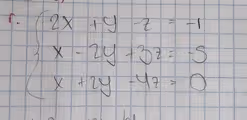 1. 2x + y - z = -1
x - 2y + 3z = -5
x + 2y - 4z = 0